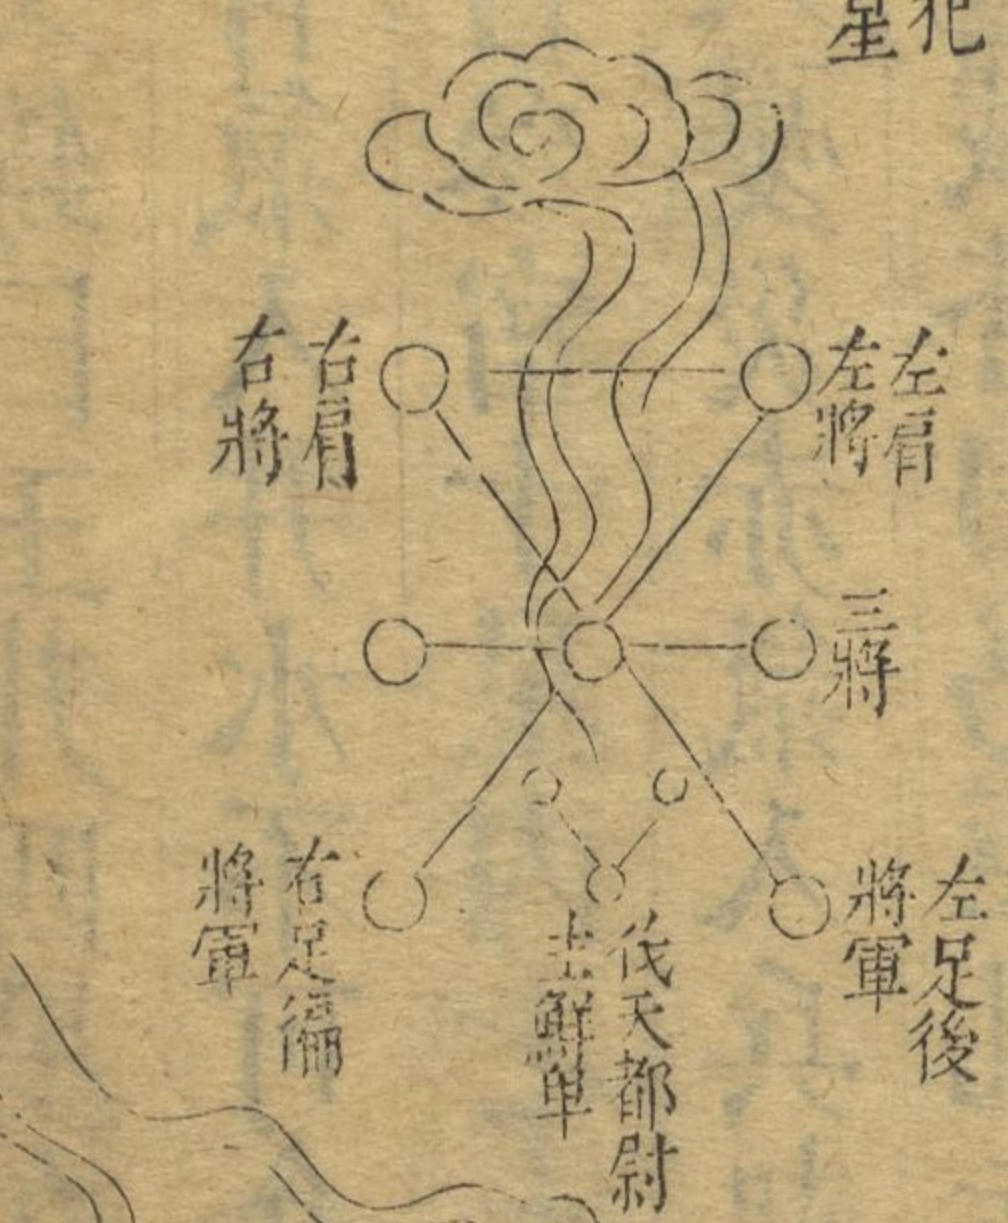 犯
星
左肩
左將
右肩
右將
三將
左足後
將軍
伐天都尉
主鮮单
右足偏
將軍